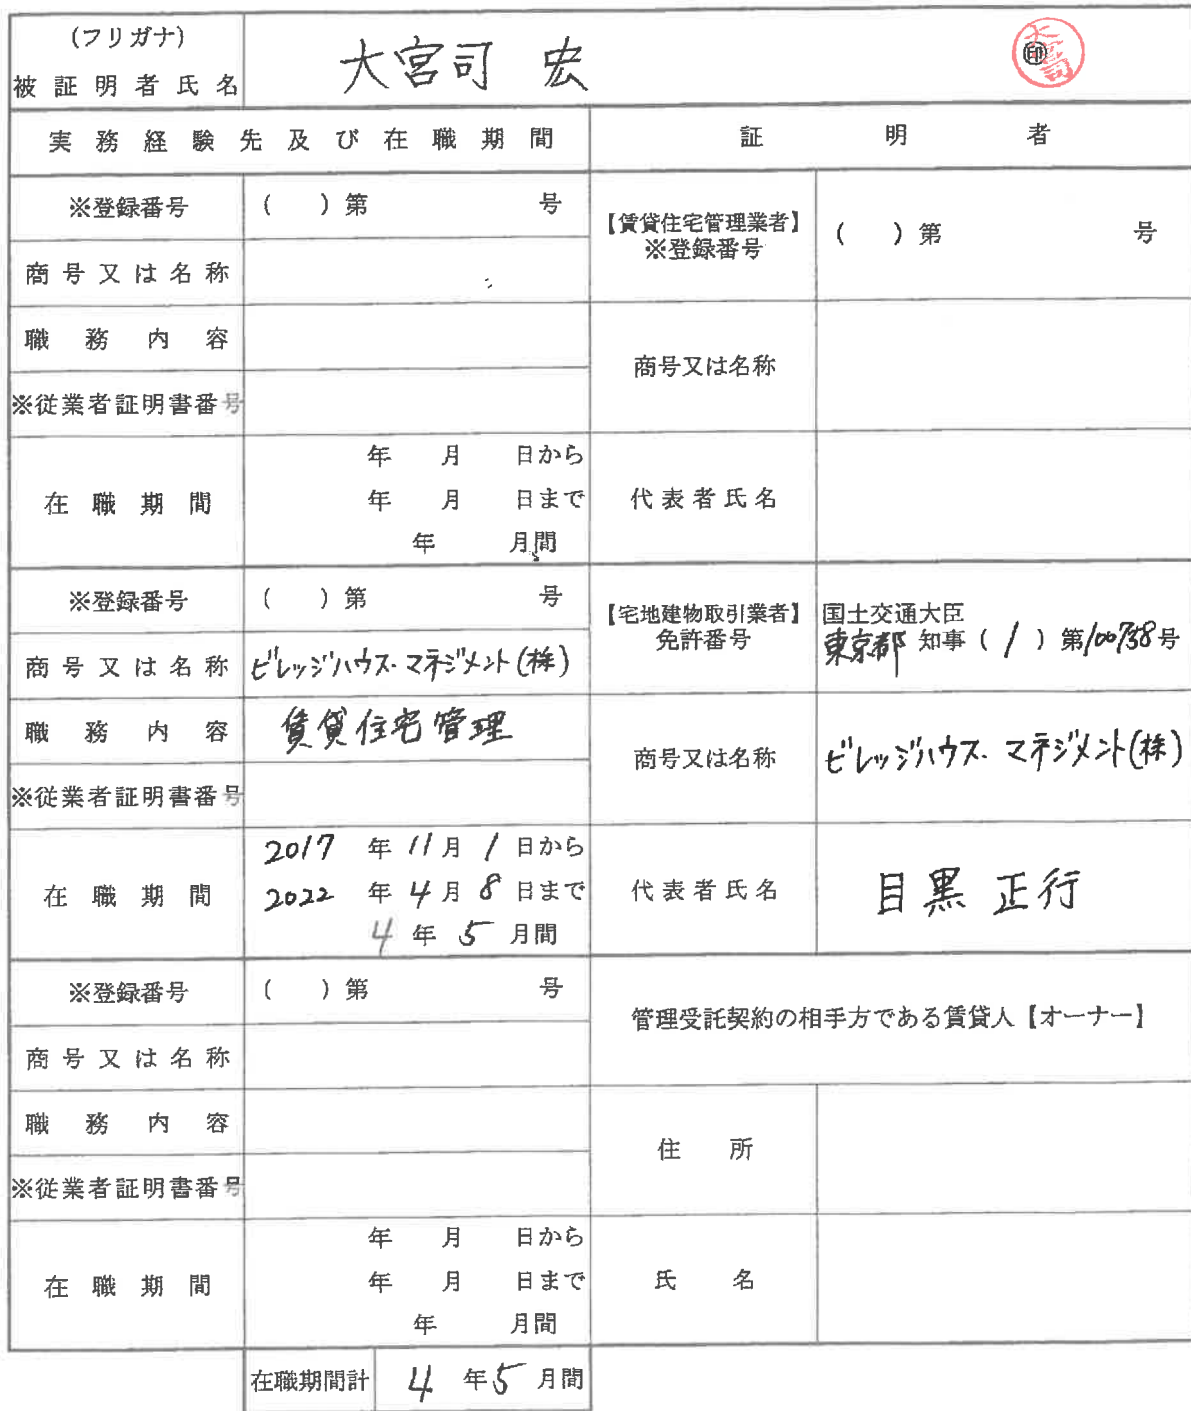 (フリガナ)
被証明者氏名
大宮司 宏
印
大宮司
実務経験先及び在職期間
証明者
※登録番号
( )第 号
商号又は名称
職務内容
※従業者証明書番号
在職期間
年 月 日から
年 月 日まで
年 月間
【賃貸住宅管理業者】
※登録番号
( )第 号
商号又は名称
代表者氏名
※登録番号
( )第 号
商号又は名称
ビレッジハウス・マネジメント(株)
職務内容
賃貸住宅管理
※従業者証明書番号
在職期間
2017 年 11 月 1 日から
2022 年 4 月 8 日まで
4 年 5 月間
【宅地建物取引業者】
免許番号
国土交通大臣
東京都 知事 ( 1 ) 第100738号
商号又は名称
ビレッジハウス・マネジメント(株)
代表者氏名
目黒 正行
※登録番号
( )第 号
商号又は名称
職務内容
※従業者証明書番号
在職期間
年 月 日から
年 月 日まで
年 月間
管理受託契約の相手方である賃貸人【オーナー】
住所
氏名
在職期間計
4 年 5 月間